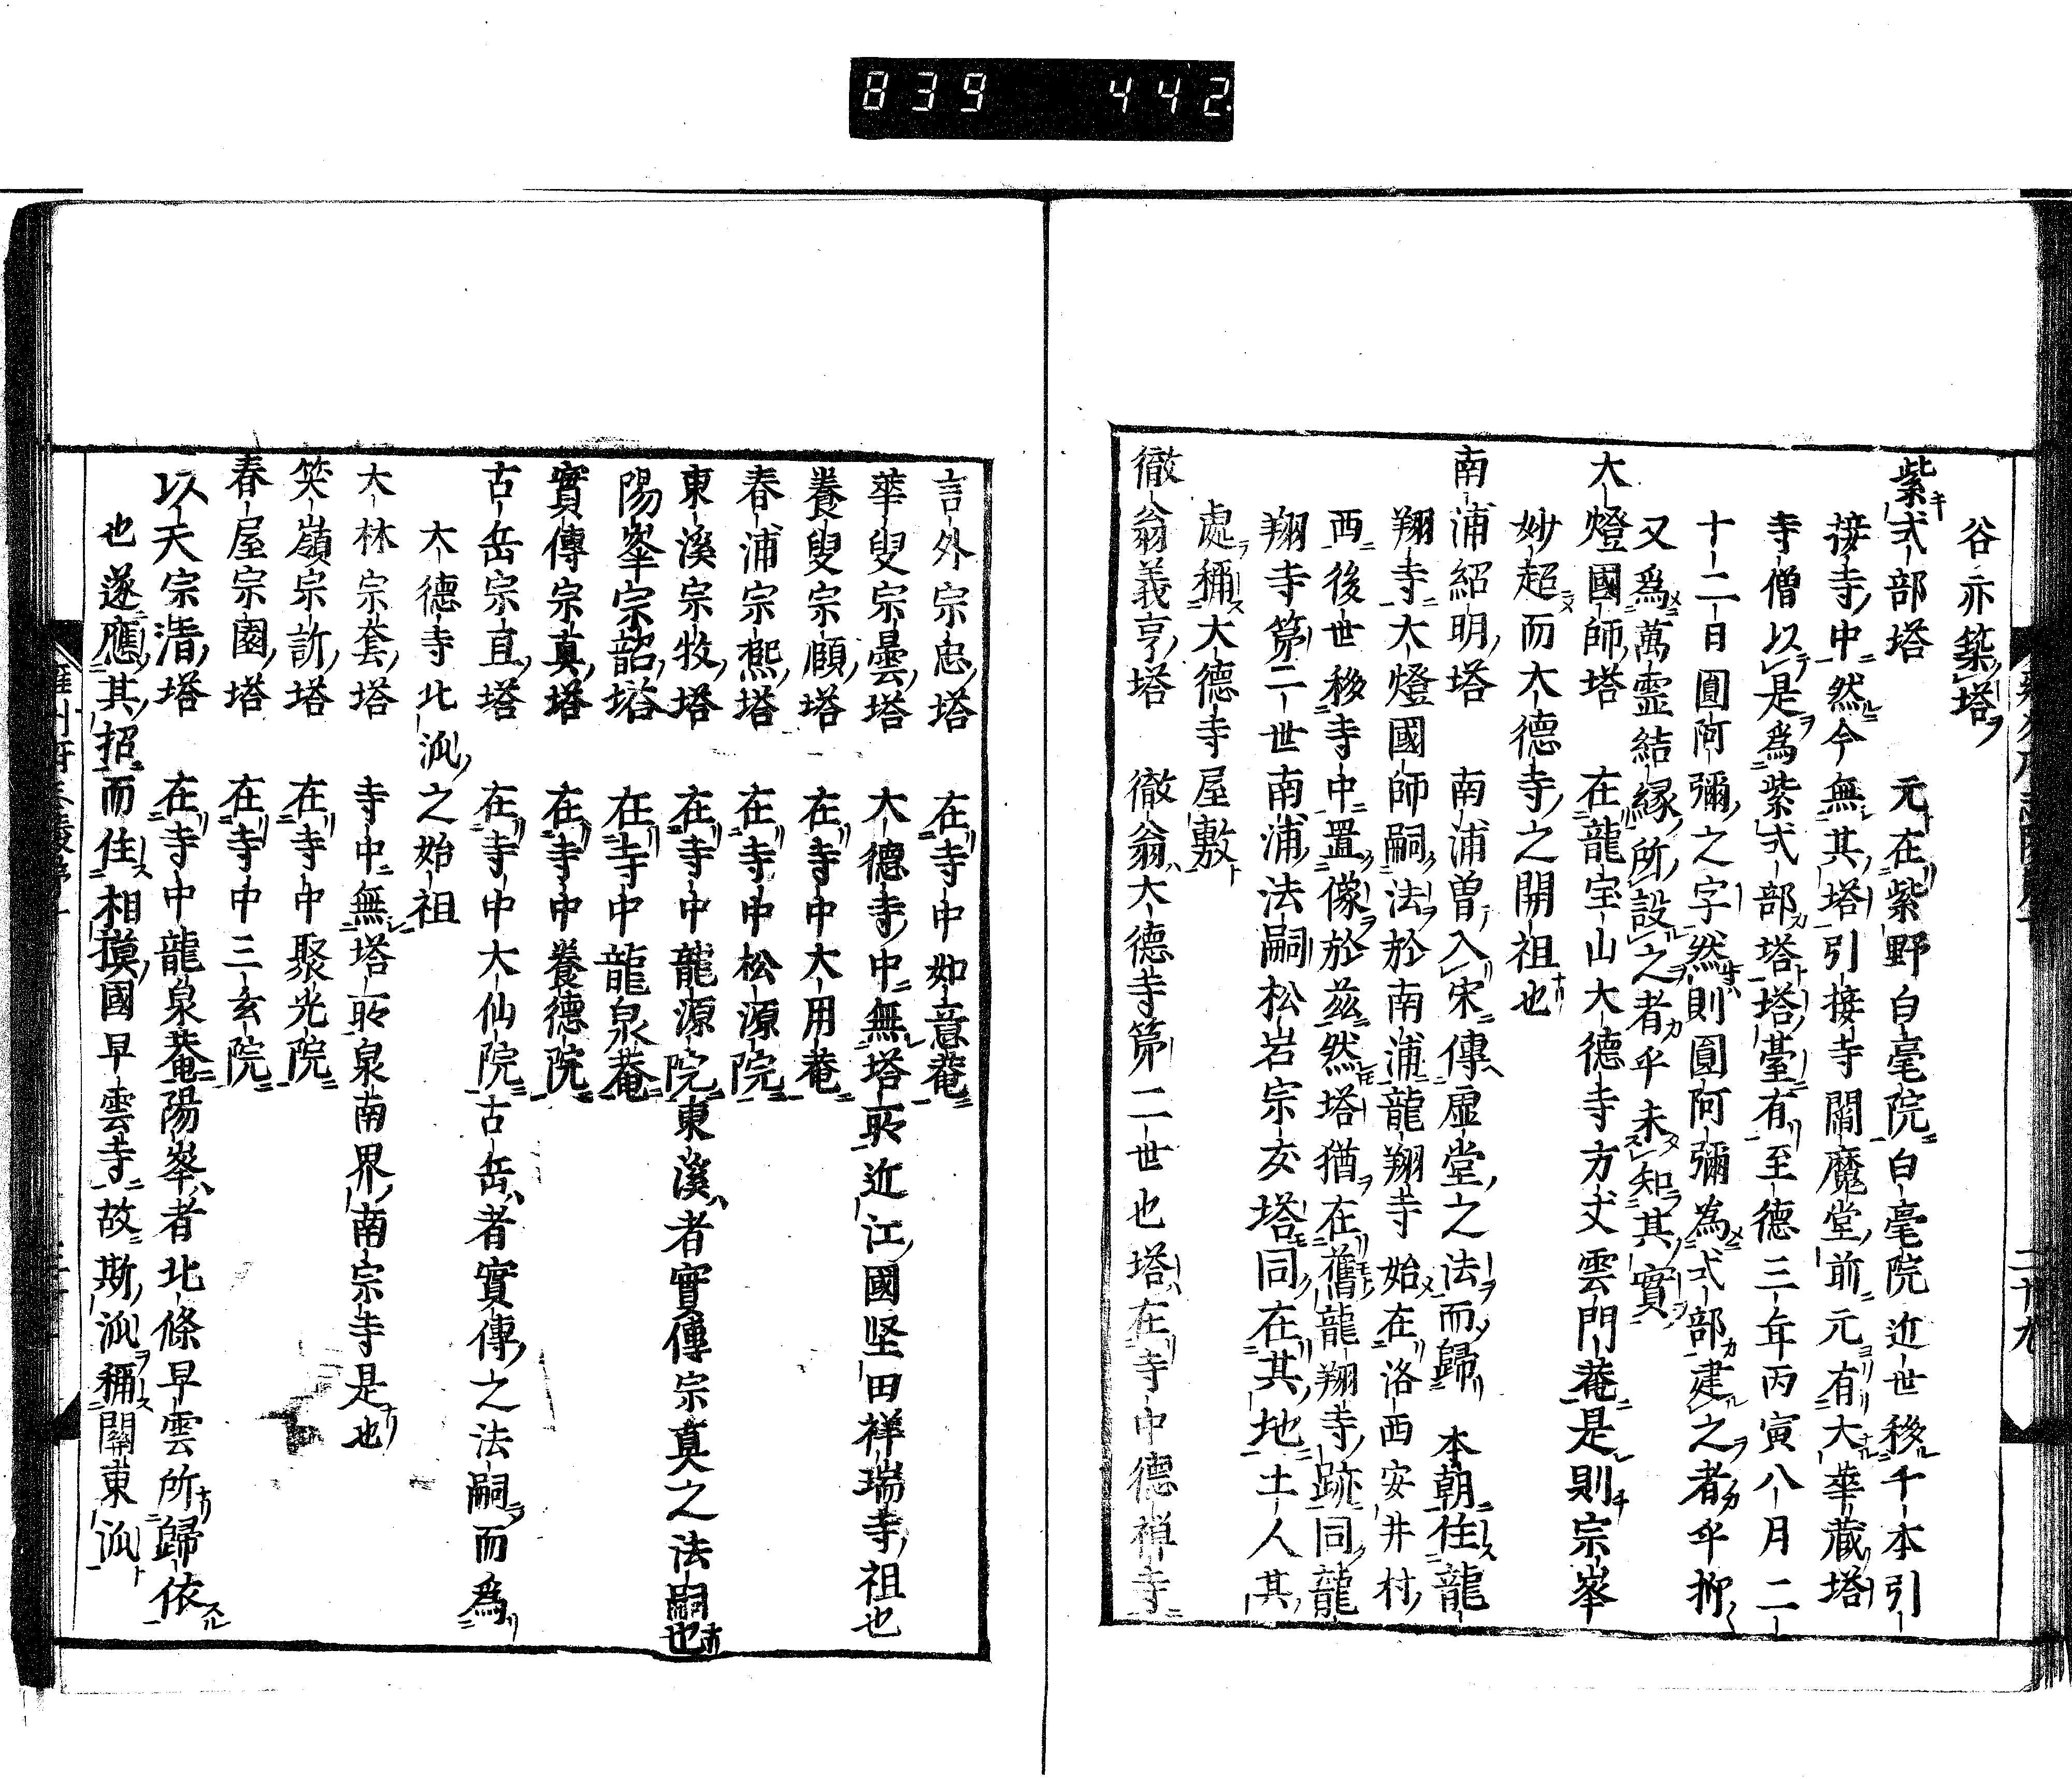 839 442
谷亦築塔
紫式部塔 元在紫野白毫院白毫院近世移千本引
接寺中然今無其塔引接寺閻魔堂前元有大華蔵塔
寺僧以是爲紫式部塔塔臺有至德三年丙寅八月二
十二日圓阿彌之字然則圓阿彌為式部建之者乎抑
又爲萬霊結縁所設之者乎未知其實
大燈國師塔 在龍宝山大德寺方丈雲門菴是則宗峯
妙超而大德寺之開祖也
南浦紹明塔 南浦曽入宋傳虚堂之法而歸 本朝住龍
翔寺大燈國師嗣法於南浦龍翔寺始在洛西安井村
西後世移寺中置像於兹然塔猶在舊龍翔寺跡同龍
翔寺第二世南浦法嗣松岩宗友塔同在其地土人其
處稱大德寺屋敷
徹翁義亨塔 徹翁大德寺第二世也塔在寺中德禅寺
言外宗忠塔 在寺中如意菴
華叟宗曇塔 大德寺中無塔所近江國堅田祥瑞寺祖也
養叟宗頤塔 在寺中大用菴
春浦宗熈塔 在寺中松源院
東溪宗牧塔 在寺中龍源院東溪者實傳宗真之法嗣也
陽峯宗韶塔 在寺中龍泉菴
實傳宗真塔 在寺中養德院
古岳宗亘塔 在寺中大仙院古岳者實傳之法嗣而爲
大德寺北派之始祖
大林宗套塔 寺中無塔所泉南界南宗寺是也
笑嶺宗訢塔 在寺中聚光院
春屋宗園塔 在寺中三玄院
以天宗清塔 在寺中龍泉菴陽峯者北條早雲所歸依
也遂應其招而住相摸國早雲寺故斯派稱關東派